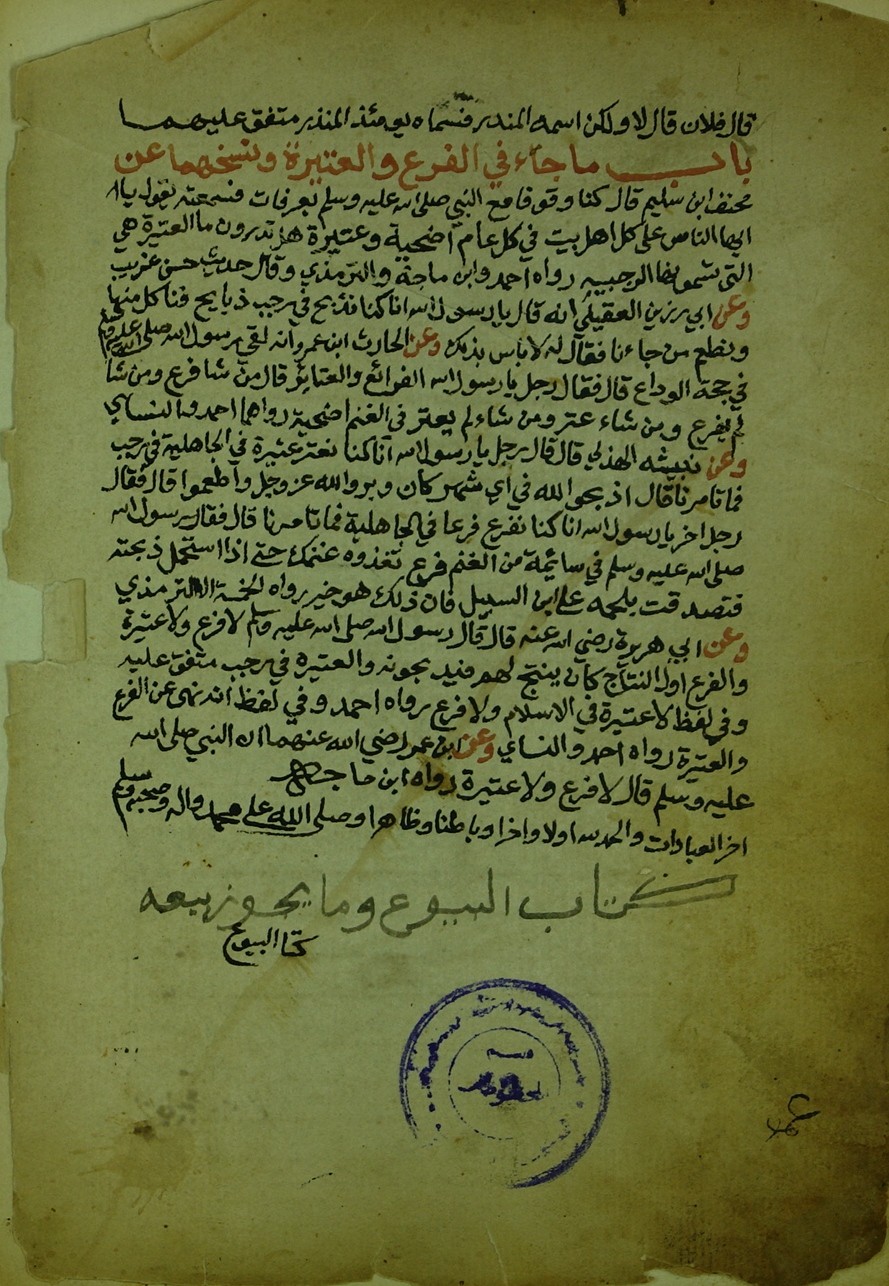 قال فلان قال لا ولكن اسمه المنذر فسماه يومئذ المنذر متفق عليهما
باب ما جاء في الفرع والعتيرة ونسخهما عن
مخنف ابن سليم قال كنا وقوفا مع النبي صلى الله عليه وسلم بعرفات فسمعته يقول يا
ايها الناس على كل اهل بيت في كل عام اضحية وعتيرة هل تدرون ما العتيرة هي
التي تسمونها الرجبيه رواه احمد وابن ماجة والترمذي وقال حديث حسن غريب
وعن ابي رزين العقيلي انه قال يا رسول الله انا كنا نذبح في رجب ذبايح فناكل منها
ونطعم من جاءنا فقال له لا باس بذلك وعن الحارث ابن عمرو انه لقي رسول الله صلى الله عليه وسلم
في حجة الوداع قال فقال رجل يا رسول الله الفرائع والعتاير قال من شا فرع ومن شا
لم يفرع ومن شاء عتر ومن شاء لم يعتر في الغنم اضحية رواهما احمد والنساي
وعن نبيشه الهذلي قال قال رجل يا رسول الله انا كنا نعتر عتيرة في الجاهلية في رجب
فما تامرنا قال اذبحوا لله في اي شهر كان وبروا لله عز وجل واطعموا قال فقال
رجل اخر يا رسول الله انا كنا نفرع فرعا في الجاهلية فما تامرنا قال فقال رسول الله
صلى الله عليه وسلم في سائمة من الغنم فرع تغذوه غنمك حتى اذا استحمل ذبحته
فتصدقت بلحمه على ابن السبيل فان ذلك هو خير رواه الخمسة الا الترمذي
وعن ابي هريرة رضي الله عنه قال قال رسول الله صلى الله عليه وسلم لا فرع ولا عتيرة
والفرع اول النتاج كان ينتج لهم فيذبحونه والعتيرة في رجب متفق عليه
وفي لفظ لا عتيرة في الاسلام ولا فرع رواه احمد وفي لفظ انه نهى عن الفرع
والعتيرة رواه احمد والنساي وعن ابن عمر رضي الله عنهما ان النبي صلى الله
عليه وسلم قال لا فرع ولا عتيرة رواه ابن ماجه
اخر العبادات والحمد لله اولا واخرا وباطنا وظاهرا وصلى الله على محمد واله وصحبه وسلم
كتاب البيوع وما يجوز بيعه
كتا البيوع
قسم